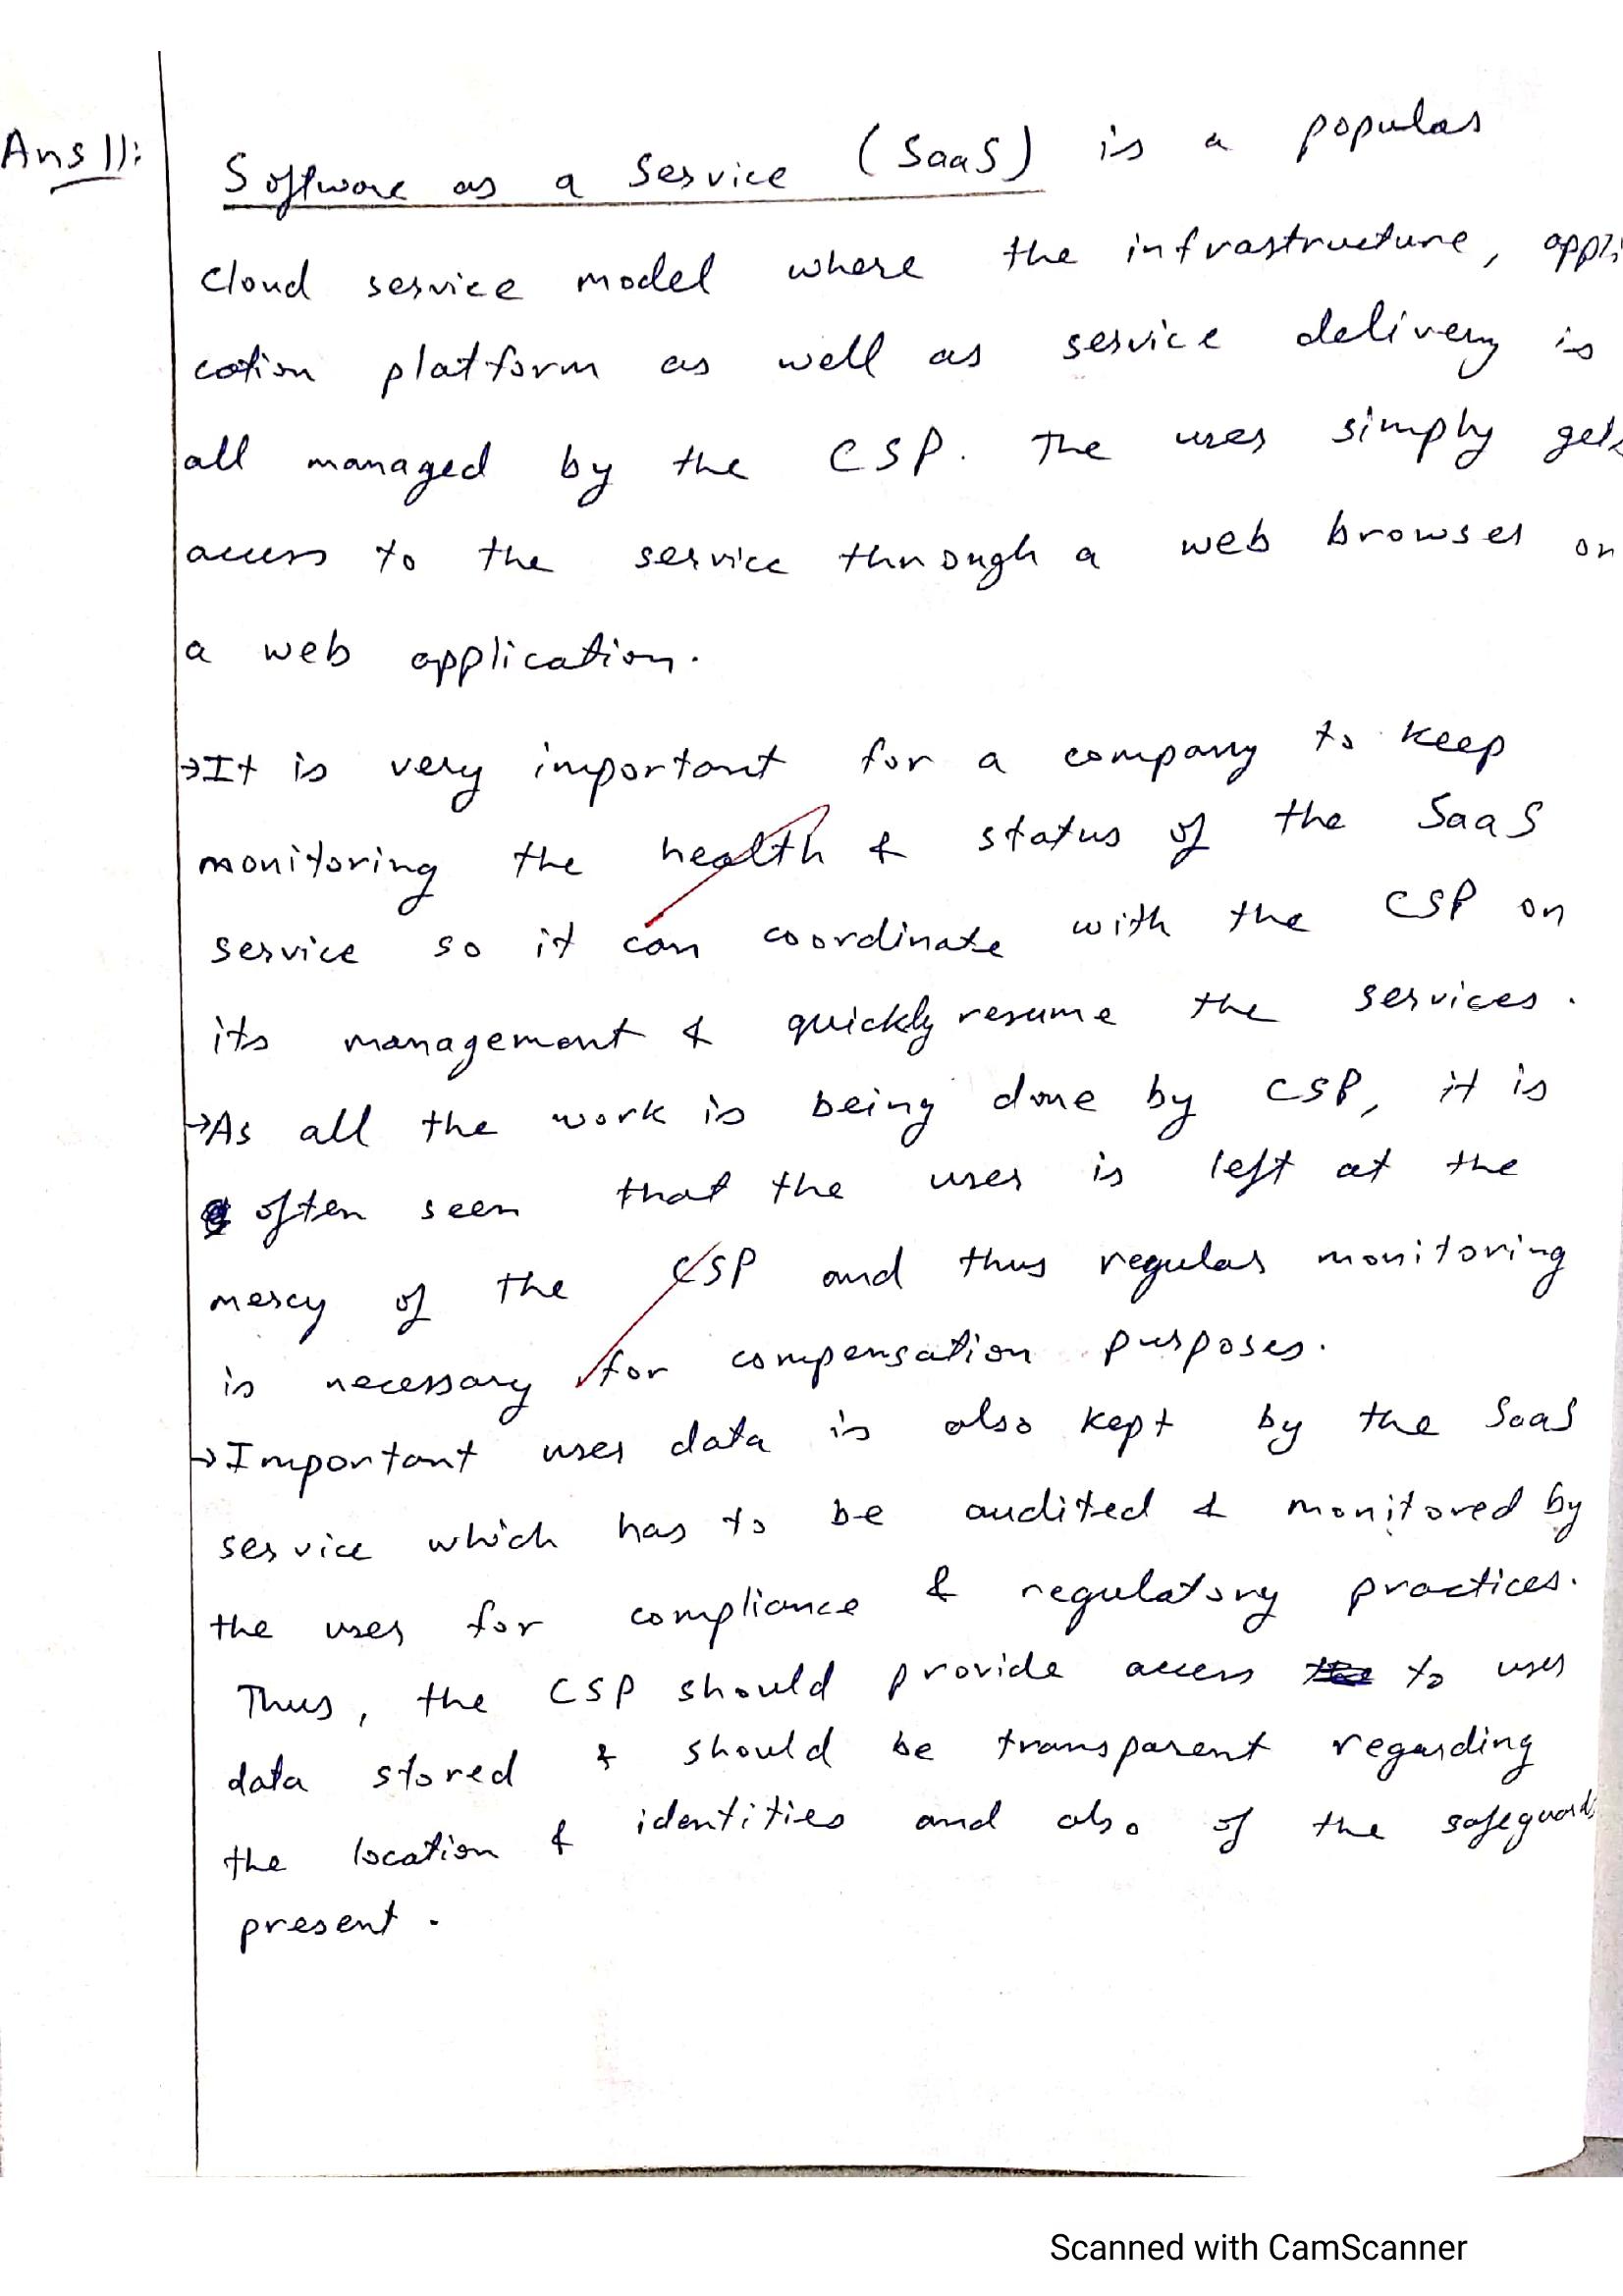 Ans 11:
Software as a Service (SaaS) is a popular
cloud service model where the infrastructure, appli
cation platform as well as service delivery is
all managed by the CSP. The user simply gets
access to the service through a web browser or
a web application.
→It is very important for a company to keep
monitoring the health & status of the SaaS
service so it can coordinate with the CSP on
its management & quickly resume the services.
→As all the work is being done by CSP, it is
often seen that the user is left at the
mercy of the CSP and thus regular monitoring
is necessary for compensation purposes.
→Important user data is also kept by the SaaS
service which has to be audited & monitored by
the user for compliance & regulatory practices.
Thus, the CSP should provide access to user
data stored & should be transparent regarding
the location & identities and also of the safeguards
present.
Scanned with CamScanner